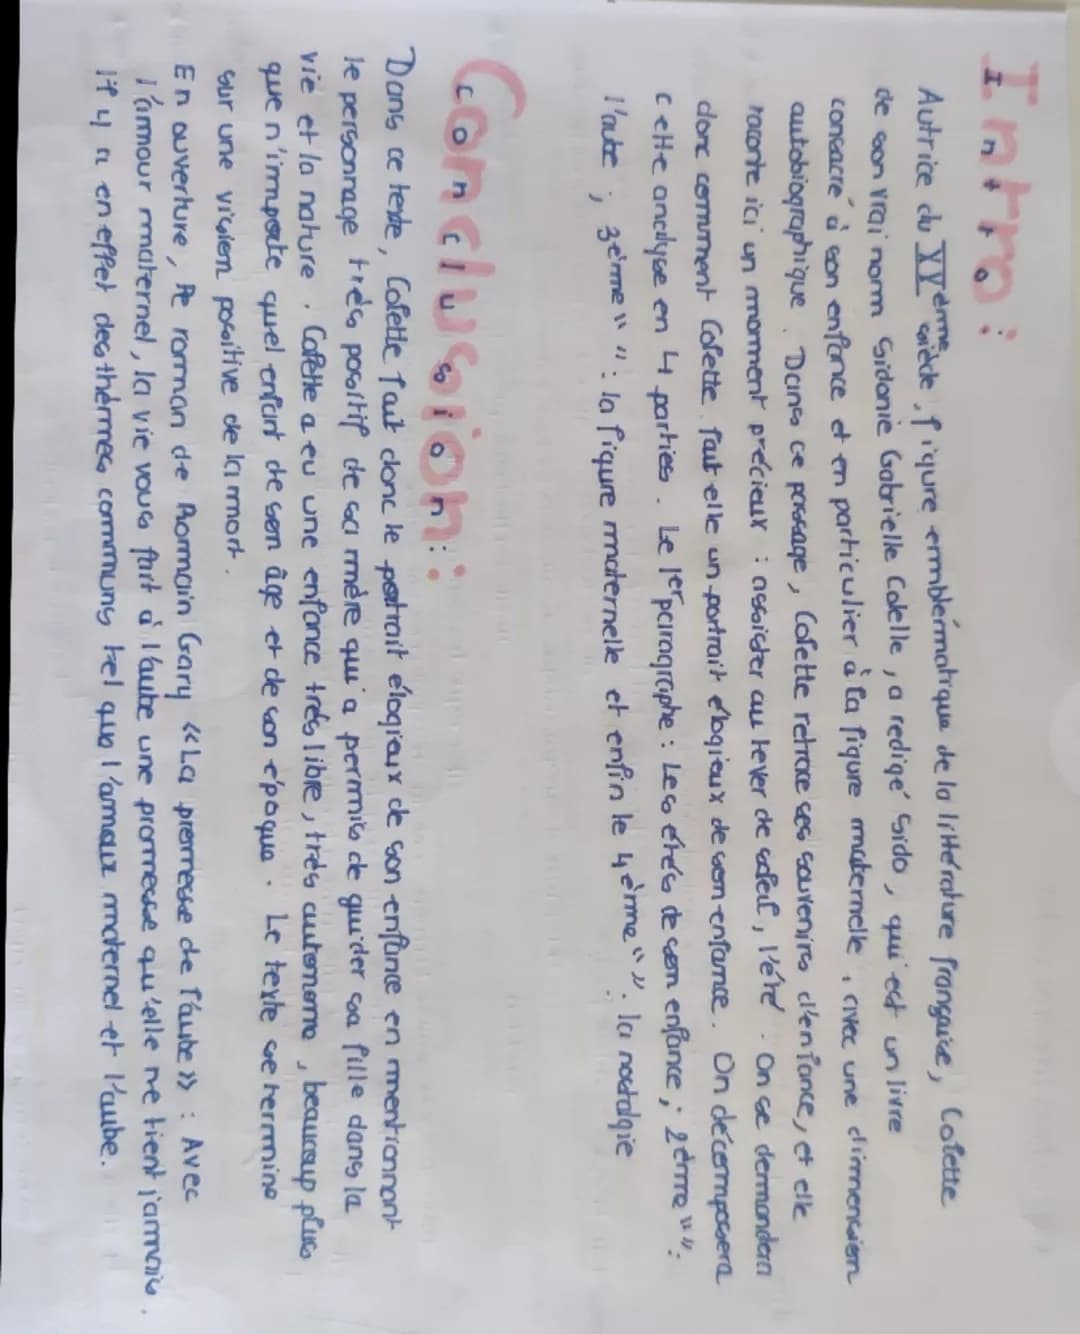 Intro:
Autrice du XVème siècle, figure emblématique de la littérature française, Colette
de son vrai nom Sidonie Gabrielle Colelle, a redigé Sido, qui est un livre
consacré à son enfance et en particulier à la figure maternelle, avec une dimension
autobiographique. Dans ce passage, Colette retrace ses souvenirs d'enfance, et elle
raconte ici un moment précieux : assister au lever de soleil, l'été. On se demandera
donc comment Colette fait elle un portrait élogieux de son enfance. On décomposera
cette analyse en 4 parties. Le 1er paragraphe : Les étés de son enfance ; 2ème " " :
l'aube ; 3ème " " : la figure maternelle et enfin le 4ème " " : la nostalgie
Conclusion :
Dans ce texte, Colette fait donc le portrait élogieux de son enfance en mentionnant
le personnage très positif de sa mère qui a permis de guider sa fille dans la
vie et la nature. Colette a eu une enfance très libre, très autonome, beaucoup plus
que n'importe quel enfant de son âge et de son époque. Le texte se termine
sur une vision positive de la mort.
En ouverture, le roman de Romain Gary «La promesse de l'aube» : Avec
l'amour maternel, la vie vous fait à l'aube une promesse qu'elle ne tient jamais.
Il y a en effet des thèmes communs tel que l'amour maternel et l'aube.